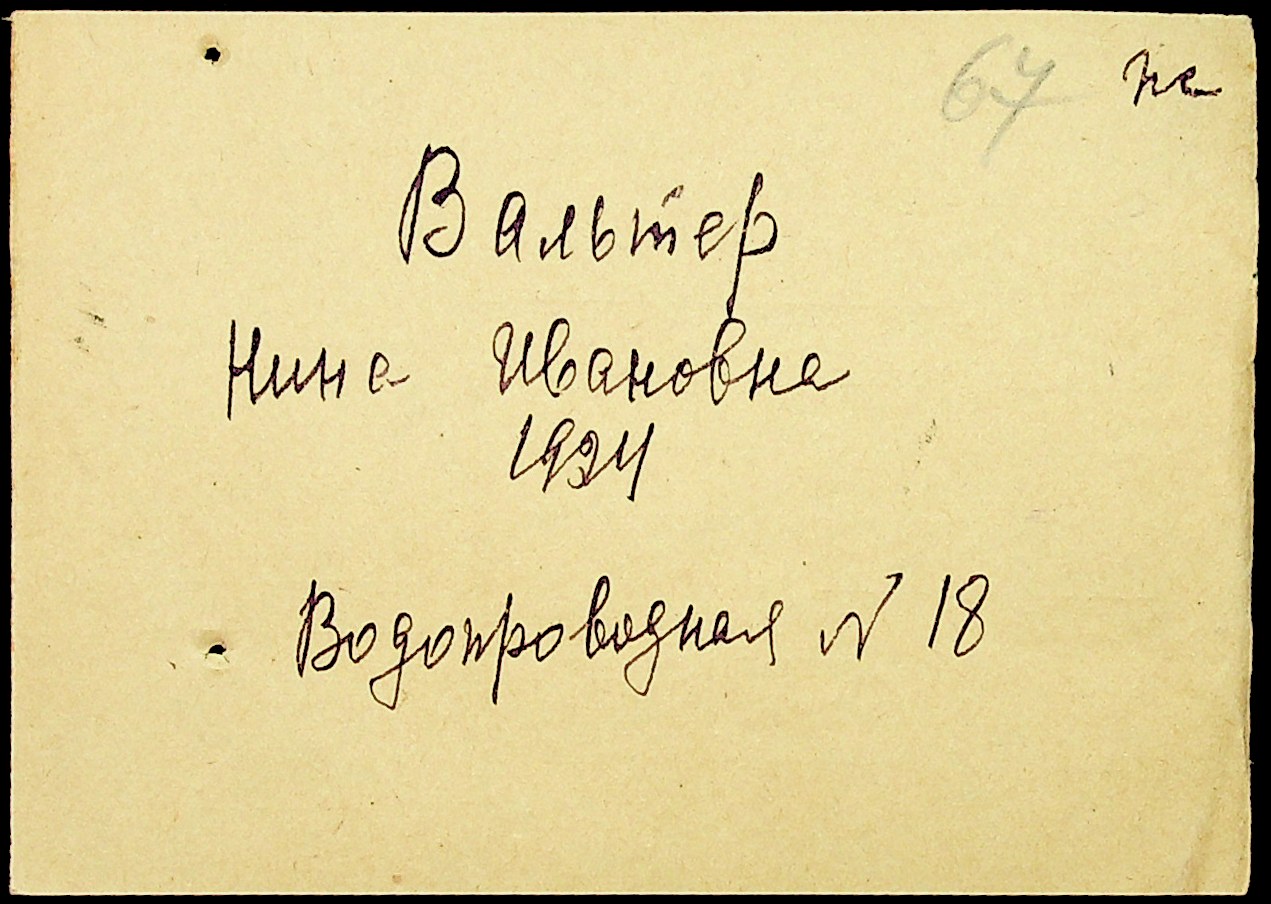 67
Вальтер
Нина Ивановна
1924
Водопроводная N 18